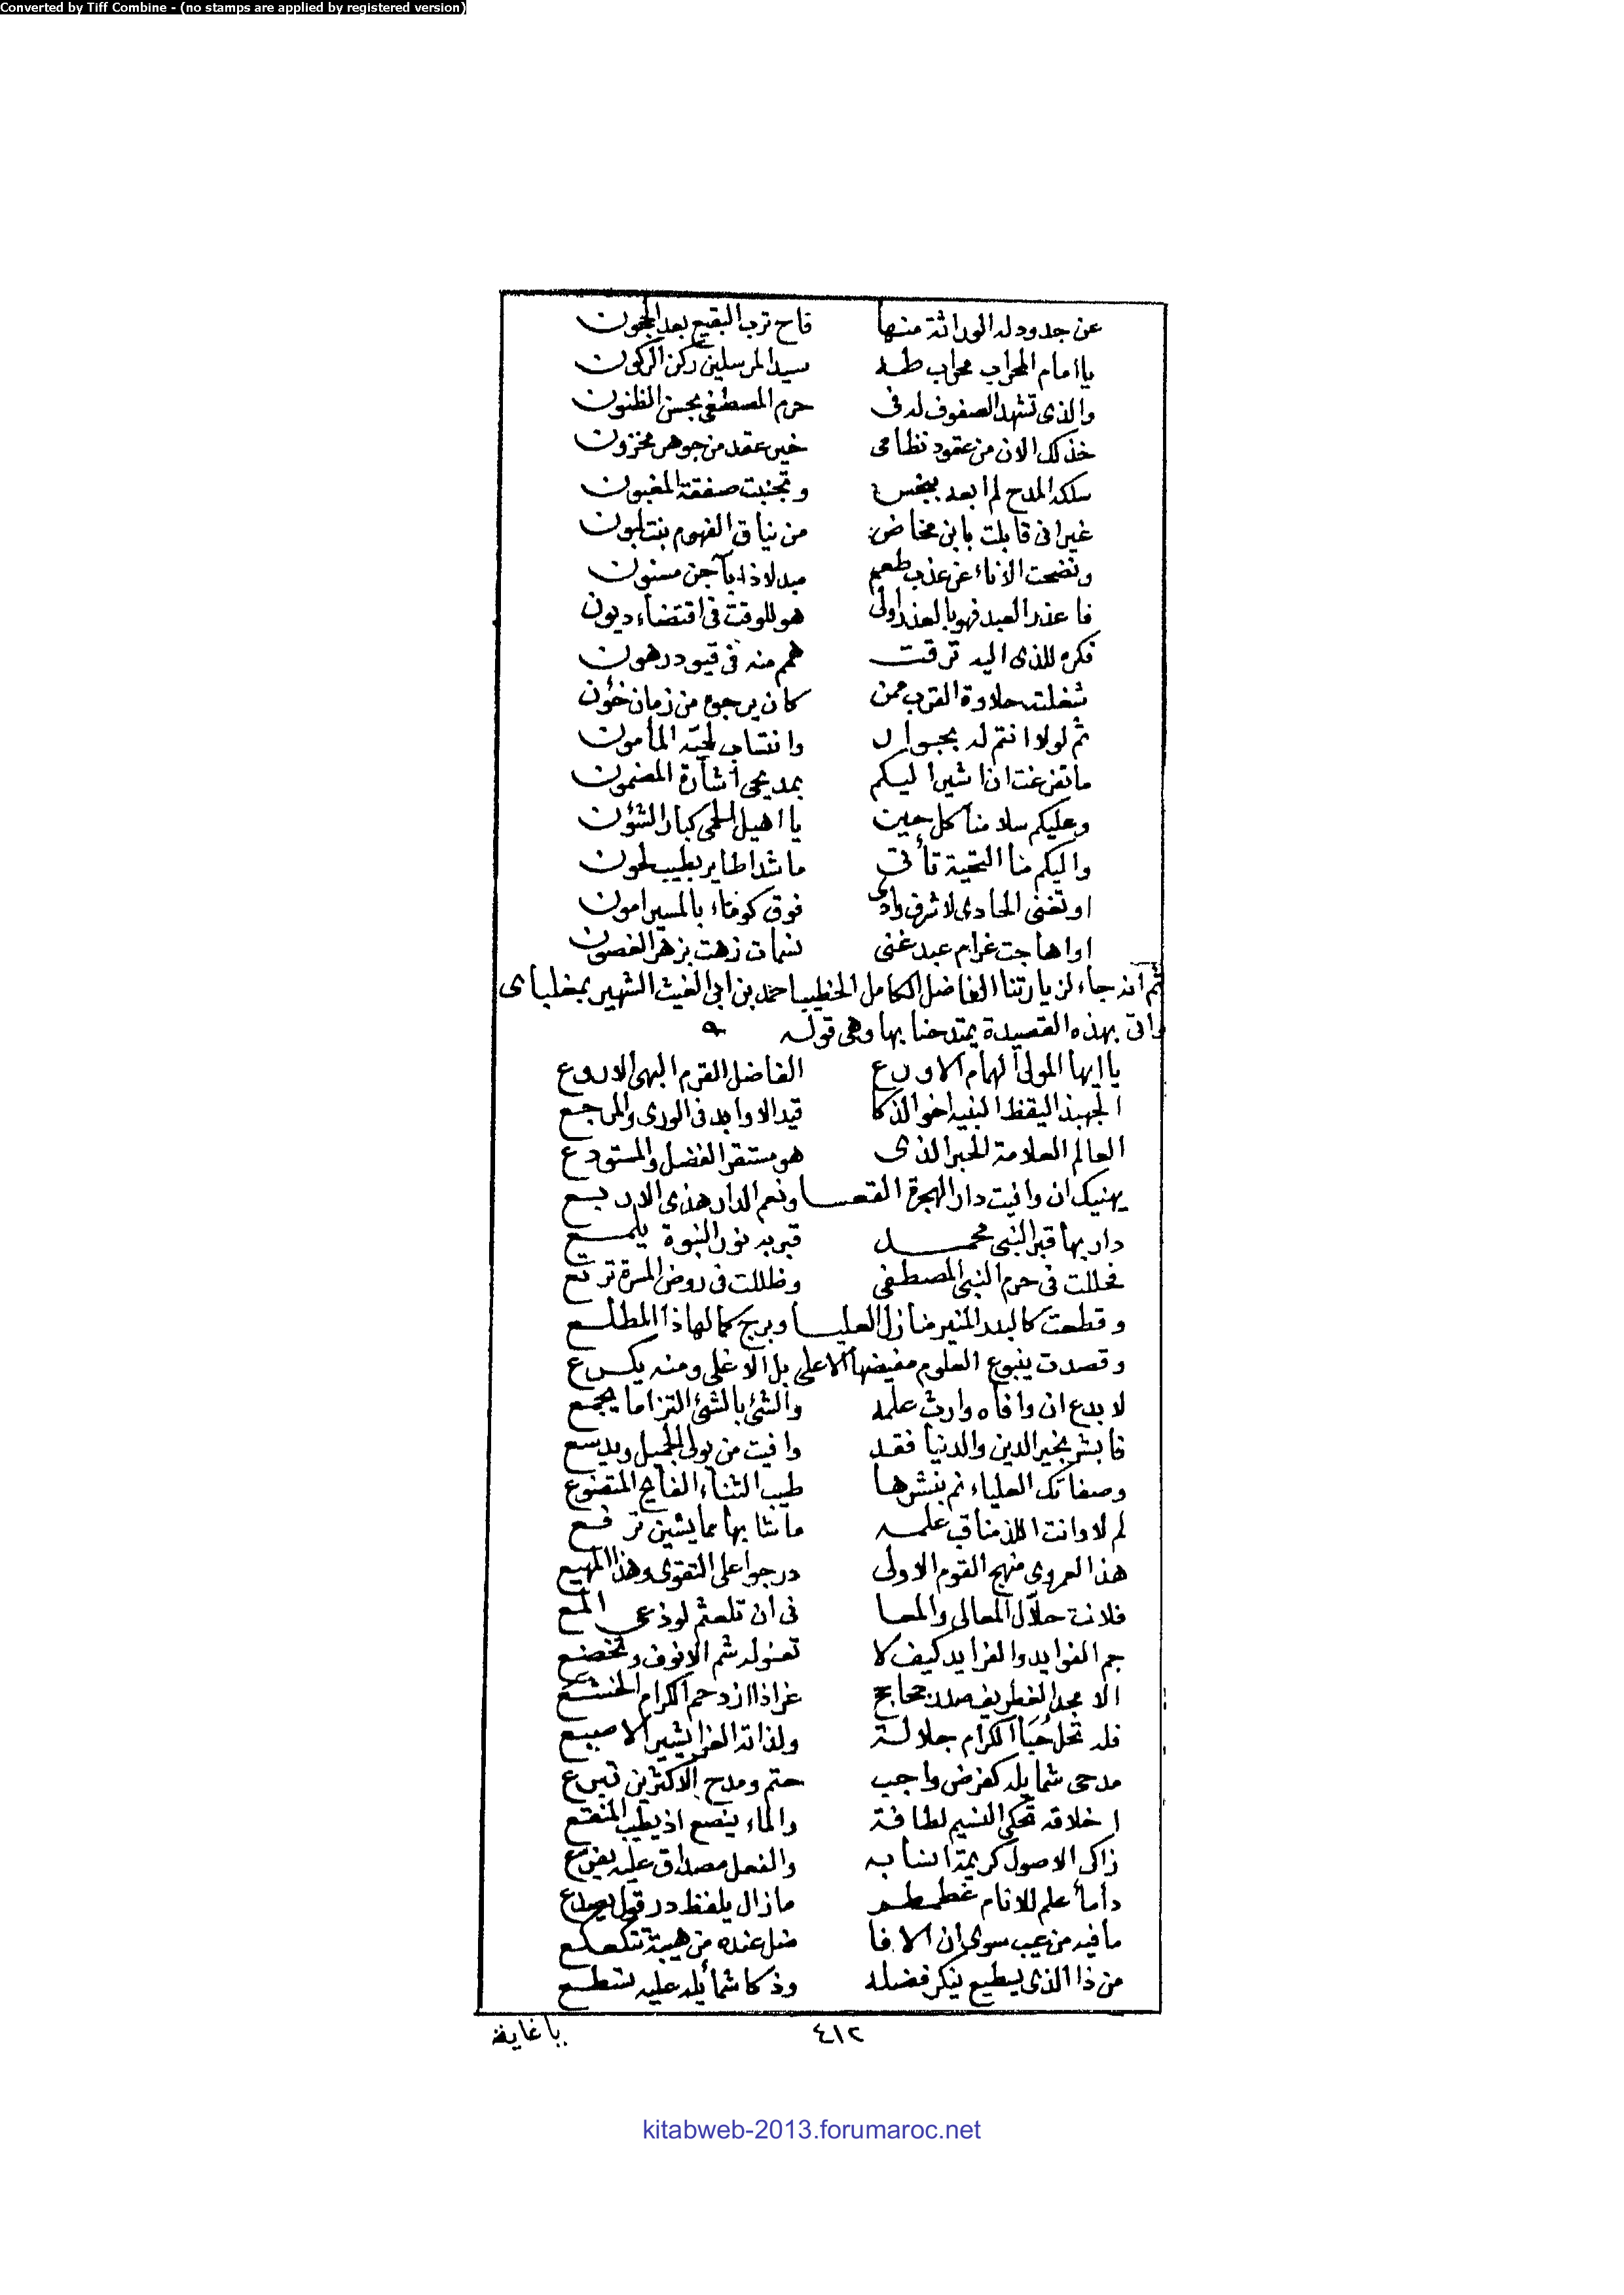 Converted by Tiff Combine - (no stamps are applied by registered version)
عن جدود له الوراثة منها فاح ترب البقيع بعد الحجون
يا امام المحراب محراب طه سيد المرسلين ركن الركون
والذى تشهد الصفوف له فى حرم المصطفى بحسن الظنون
خذ لك الان من عقود نظامى خير عقد من جوهر مخزون
سلكه المدح لم ابعه ببخس وتجنبت صفقة المغبون
غير انى قابلت بابن مخاض من نياق الفهوم بنت لبون
ونضحت الاناء عن عذب طعم مبدلا ذا بآجن مسنون
فاعذر العبد فهو بالعذر اولى هو للوقت فى اقتضاء ديون
فكره للذى اليه ترقت همم منه فى قيود رهون
شغلته حلاوة القرب ممن كان يرجوه من زمان خؤن
ثم لولا انتم له بجوار وانتساب لحيّه المأمون
ما تفرغت ان اشير اليكم بمديحى اشارة المضمون
وعليكم سلامنا كل حين يا اهيل الحمى كبار الشؤن
واليكم منا التحية تأتى ما شدا طاير بطيب لحون
او تغنى الحادى لاشرف وادى فوق كوماء بالمسير امون
او اهاجت غرام عبد غنى نسمات زهت بزهر الغصون
ثم انه جاء لزيارتنا الفاضل الكامل الخطيب احمد بن ابى الغيث الشهير بمغلباى
واتى بهذه القصيدة يمتدحنا بها وهى قوله
يا ايها المولى الهمام الاورع الفاضل القرم البهى الاروع
الجهبذ اليقظ النبيه اخو الذكا قيد الاوابد فى الورى والمرجع
العالم العلامة الحبر الذى هو مستقر الفضل والمستودع
يهنيك ان وافيت دار الهجرة القعسا ونعم الدار هذى الاربع
دار بها قبر النبى محمد قبر به نور النبوة يلمع
فحللت فى حرم النبى المصطفى وظللت فى روض المسرة ترتع
وقطعت كالبدر المنير منازل العليا وبرج كمالها ذا المطلع
وقصدت ينبوع العلوم مفيضها الاعلى بل الاغلى ومنه يكرع
لا بدع ان وافاه وارث علمه والشئ بالشئ التزاما يجمع
فابشر بخير الدين والدنيا فقد وافيت من يولى الجميل ويدسع
وصفاتك العلياء نم بنشرها طيب الثناء الفايح المتضوع
لم لا وانت اللذ مناقب علمه ما شابها مما يشين ترفع
هذا لعمروى منهج القوم الاولى درجوا على التقوى وهذا المهيع
فلانت حلّال المعالى والمعا نى ان تلعثم لوذعى المع
جم الفوايد والفرايد كيف لا تعنو له شم الانوف وتخضع
الامجد الغطريف صدر جحاجح غر اذا ازدحم الكرام الخشع
فله تحل حُبَا الكرام جلالة ولذاته الغرا يشير الاصبع
مدحى شمايله كفرض واجب حتم ومدح الاكثرين تبرع
اخلاقه تحكى النسيم لطافة والماء ينصع اذ يطيب المنقع
زاكى الاصول كريمة انسابه والفعل مصداق عليه يفرع
دأماء علم للانام غطمطم ما زال يلفظ در قول يصدع
ما فيه من عيب سوى ان الافا ضل عنده من هيبة تتكعكع
من ذا الذى يسطيع ينكر فضله وذكا شمائله عليه تسطع
٤١٢
يا غاية
kitabweb-2013.forumaroc.net